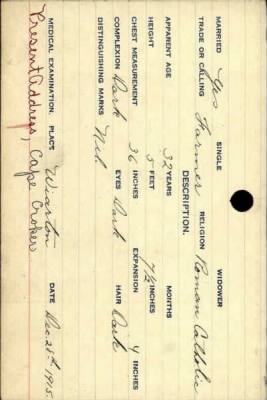 MARRIED Yes SINGLE WIDOWER
TRADE OR CALLING Farmer RELIGION Roman Catholic
DESCRIPTION.
APPARENT AGE 32 YEARS MONTHS
HEIGHT 5 FEET 7½ INCHES
CHEST MEASUREMENT 36 INCHES EXPANSION 4 INCHES
COMPLEXION Dark EYES Dark HAIR Dark
DISTINGUISHING MARKS Nil.
MEDICAL EXAMINATION. PLACE Wiarton DATE Dec 28th, 1915.
Present Address, Cape Croker